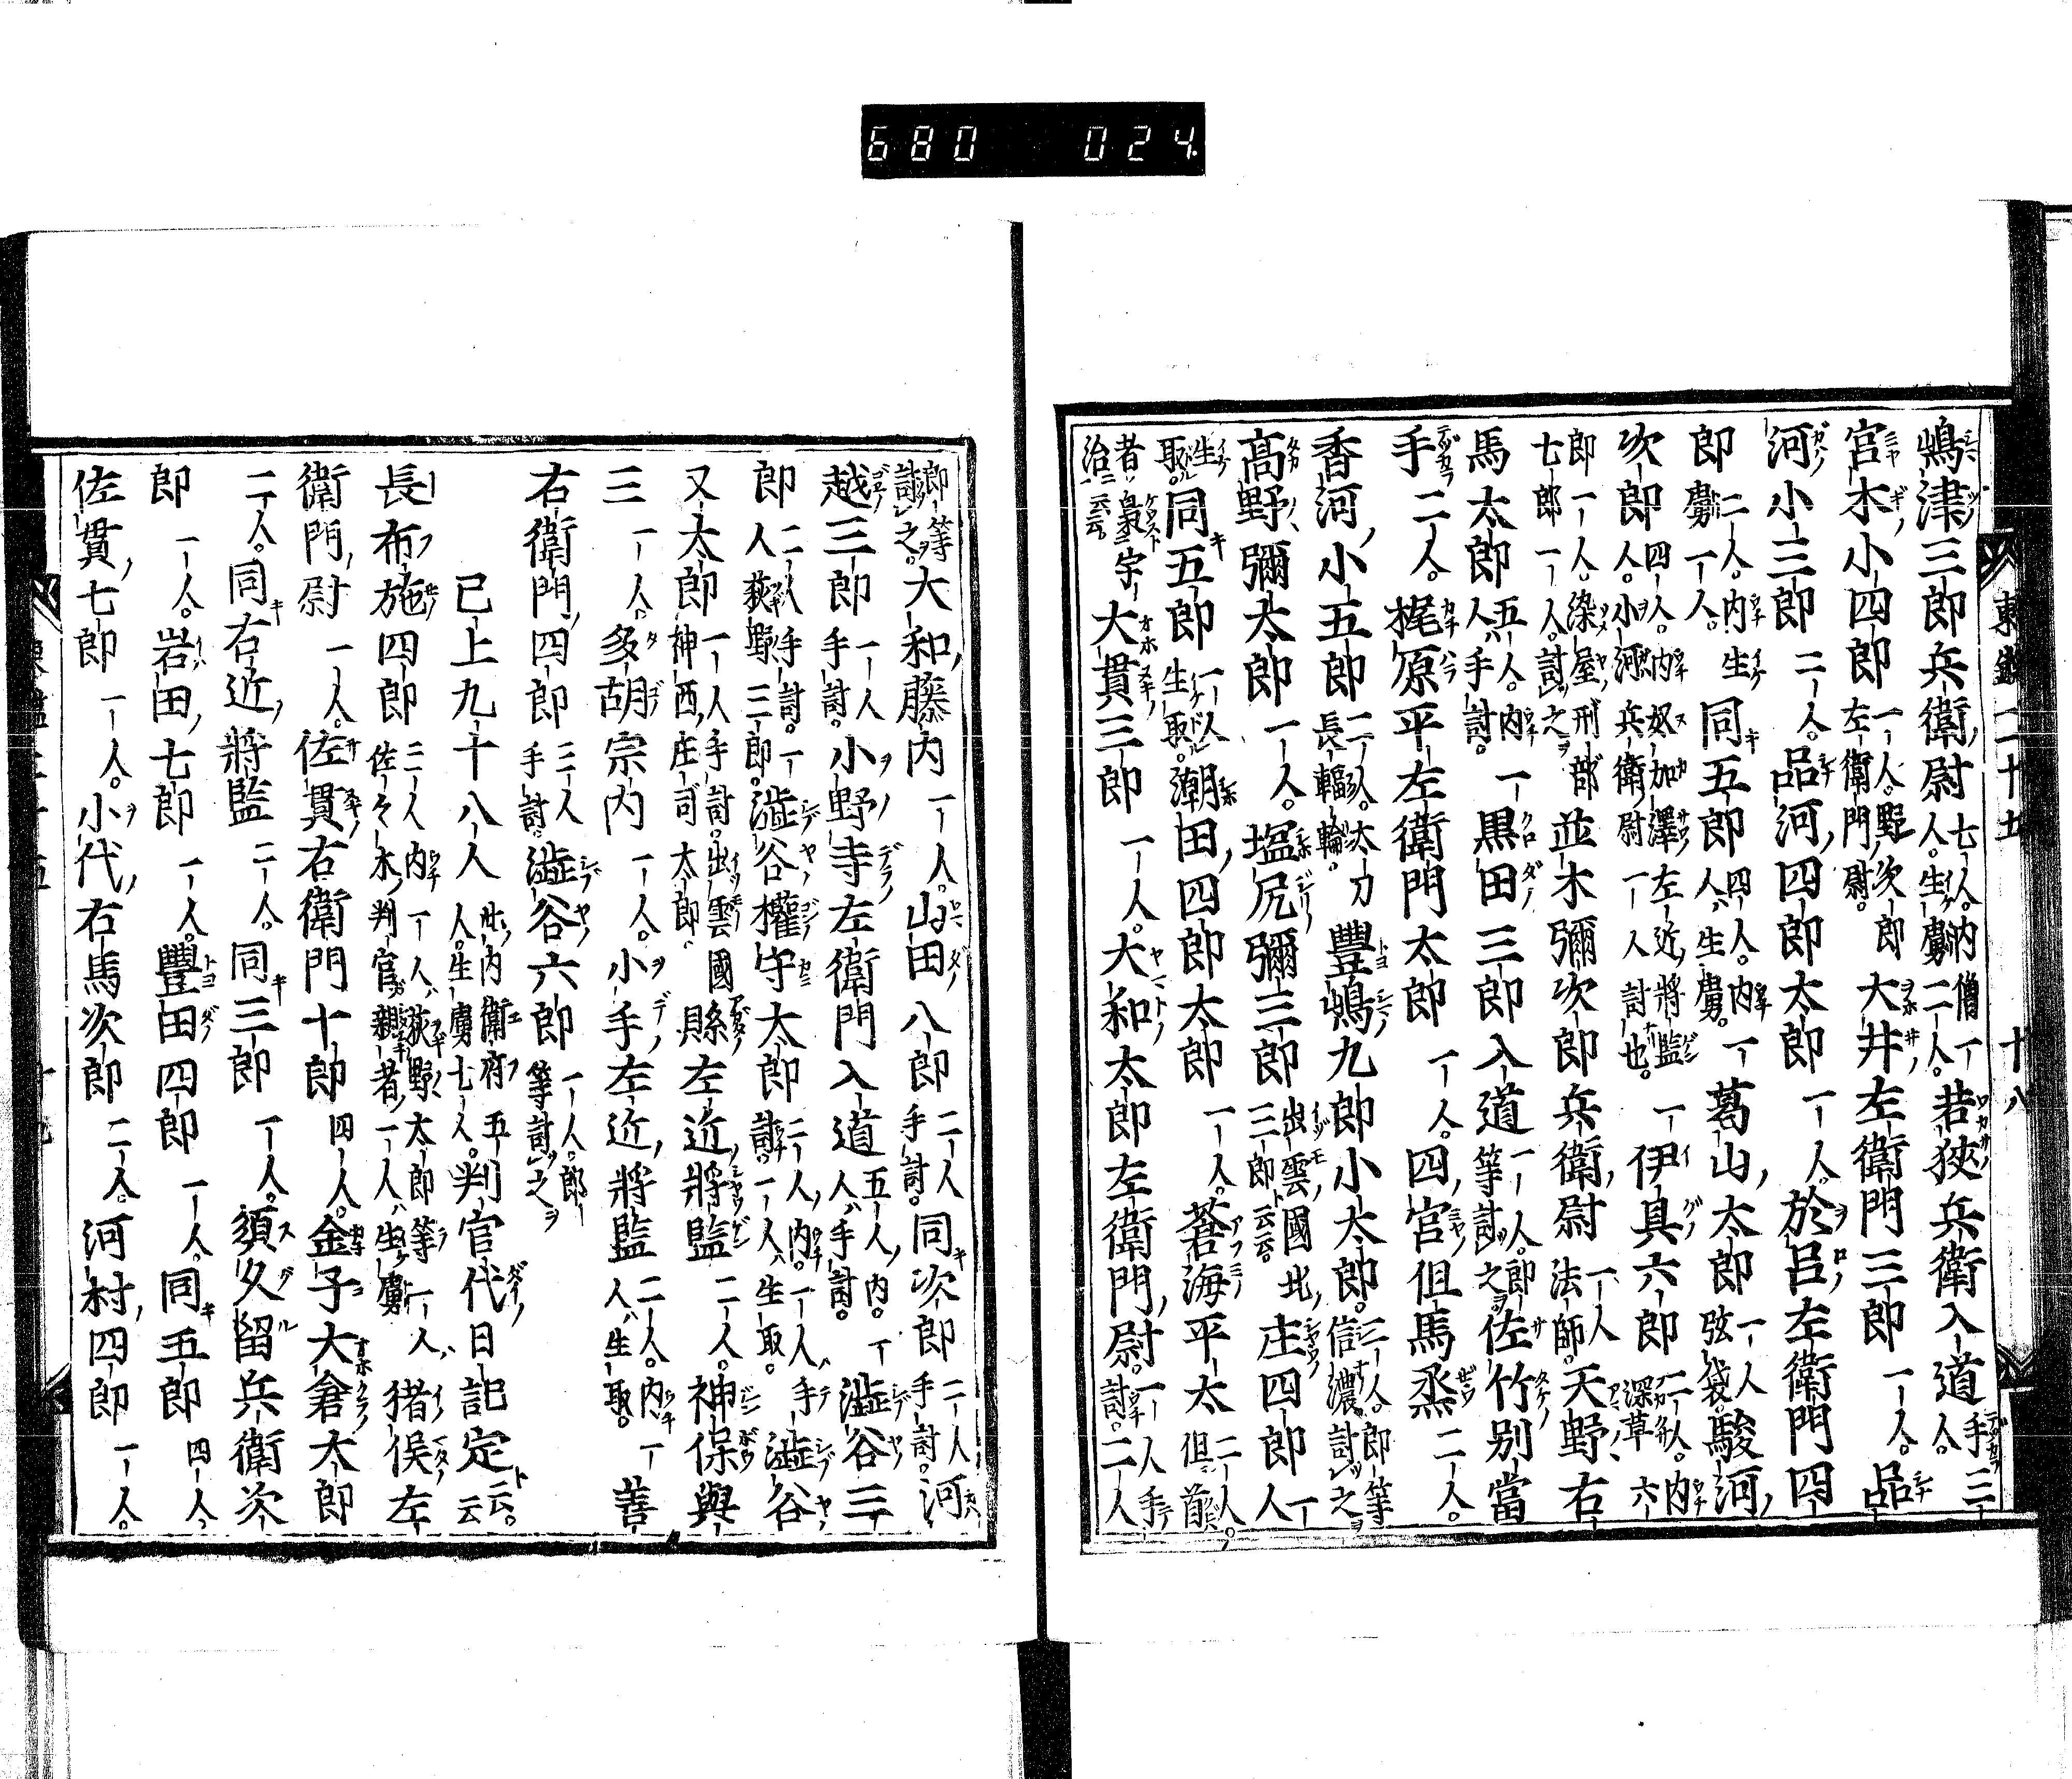 680 024
東鑑二十五 十八
鴫津三郎兵衛尉七人。内僧一人。生虜二人。若狹兵衛入道手三
宮木小四郎一人。野次郎左衛門尉。大井左衛門三郎一人。品
河小三郎二人。品河四郎太郎一人。於呂左衛門四
郎二人。内生虜一人。同五郎四人。内一人生虜。葛山太郎一人弦袋。駿河
次郎四人。内奴加澤左近將監一人。小河兵衛尉一人討也。伊具六郎一人。内深草六
郎一人。染屋刑部七郎一人。討之。並木彌次郎兵衛尉一人法師。天野右
馬太郎五人。内一人手討。黒田三郎入道一人。郎等討之。佐竹別當
手二人。梶原平左衛門太郎一人。四宮但馬烝二人。
香河小五郎二人。太刀長輻輪。豐嶋九郎小太郎。二人。郎等信濃討之。
高野彌太郎一人。塩尻彌三郎出雲國三郎云云。北庄四郎一人
生取。同五郎一人生取。潮田四郎太郎一人。蒼海平太二人。但首
者梟宇治云云。大貫三郎一人。大和太郎左衛門尉。一人手討。二人
郎等討之。大和藤内一人。山田八郎二人手討。同次郎二人手討。河
越三郎一人手討。小野寺左衛門入道五人。内一人手討。澁谷三
郎二人手討。一人荻野三郎。澁谷權守太郎二人。内一人手討。一人生取。澁谷
又太郎一人手討。出雲國神西庄司太郎。縣左近將監二人。神保與
三一人。多胡宗内一人。小手左近將監二人。内一人生取。善
右衛門四郎三人手討。澁谷六郎一人。郎等討之
已上九十八人此内衛府五人。生虜七人。判官代日記定云云。
長布施四郎二人内一人荻野太郎等一人佐々木判官親者一人生虜。猪俣左
衛門尉一人。佐貫右衛門十郎四人。金子大倉太郎
二人。同右近將監二人。同三郎一人。須久留兵衛次
郎一人。岩田七郎一人。豐田四郎一人。同五郎四人。
佐貫七郎一人。小代右馬次郎二人。河村四郎一人。